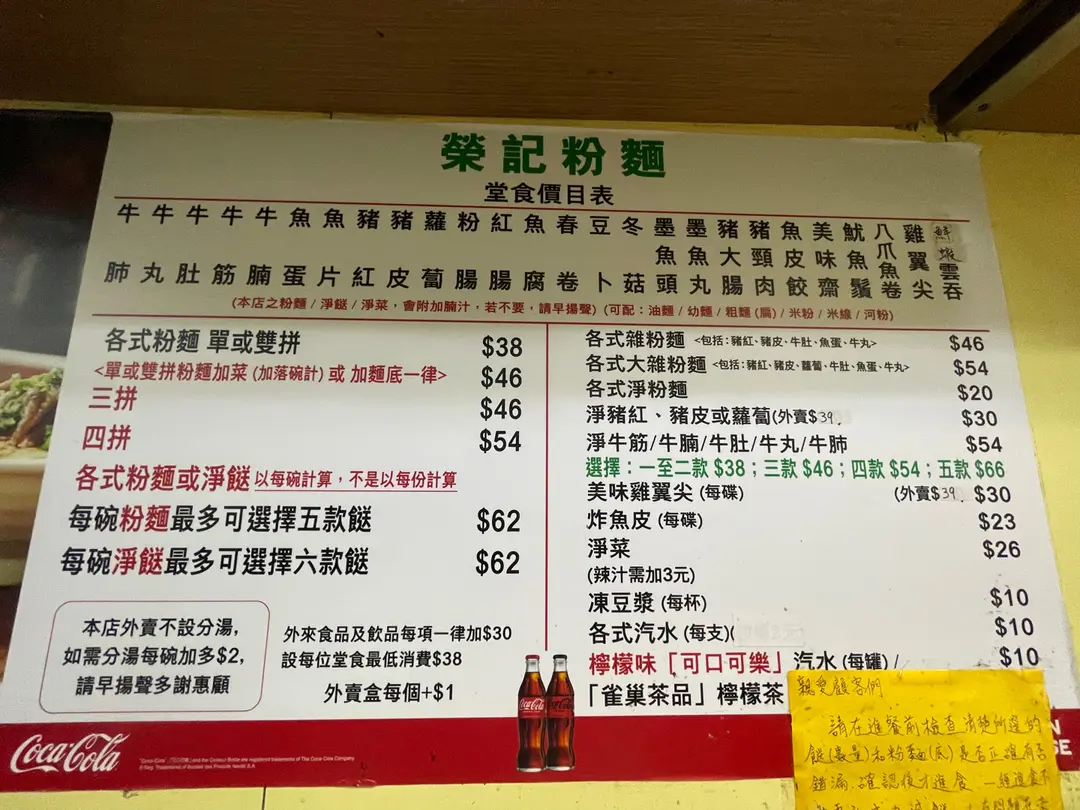 榮記粉麵
堂食價目表
牛肺
牛丸
牛肚
牛筋
牛腩
魚蛋
魚片
豬紅
豬皮
蘿蔔
粉腸
紅腸
魚腐
春卷
豆卜
冬菇
墨魚頭
墨魚丸
豬大腸
豬頸肉
魚皮餃
美味齋
魷魚鬚
八爪魚卷
雞翼尖
鮮蝦雲吞
(本店之粉麵 / 淨餸 / 淨菜，會附加腩汁，若不要，請早揚聲) (可配：油麵 / 幼麵 / 粗麵 (扁) / 米粉 / 米線 / 河粉)
各式粉麵 單或雙拼 $38
<單或雙拼粉麵加菜 (加落碗計) 或 加麵底一律> $46
三拼 $46
四拼 $54
各式粉麵或淨餸 以每碗計算，不是以每份計算
每碗粉麵最多可選擇五款餸 $62
每碗淨餸最多可選擇六款餸 $62
本店外賣不設分湯,
如需分湯每碗加多$2,
請早揚聲多謝惠顧
外來食品及飲品每項一律加$30
設每位堂食最低消費$38
外賣盒每個+$1
各式雜粉麵 <包括：豬紅、豬皮、牛肚、魚蛋、牛丸> $46
各式大雜粉麵 <包括：豬紅、豬皮、蘿蔔、牛肚、魚蛋、牛丸> $54
各式淨粉麵 $20
淨豬紅、豬皮或蘿蔔(外賣$39. $30
淨牛筋/牛腩/牛肚/牛丸/牛肺 $54
選擇：一至二款 $38；三款 $46；四款 $54；五款 $66
美味雞翼尖 (每碟) (外賣$39. $30
炸魚皮 (每碟) $23
淨菜 $26
(辣汁需加3元)
凍豆漿 (每杯) $10
各式汽水 (每支)( $10
檸檬味「可口可樂」汽水 (每罐) / $10
「雀巢茶品」檸檬茶
Coca-Cola
親愛顧客們
請在進餐前檢查清楚所選的
餸(數量)和粉麵(底)是否正確有否
錯漏,確認後才進食